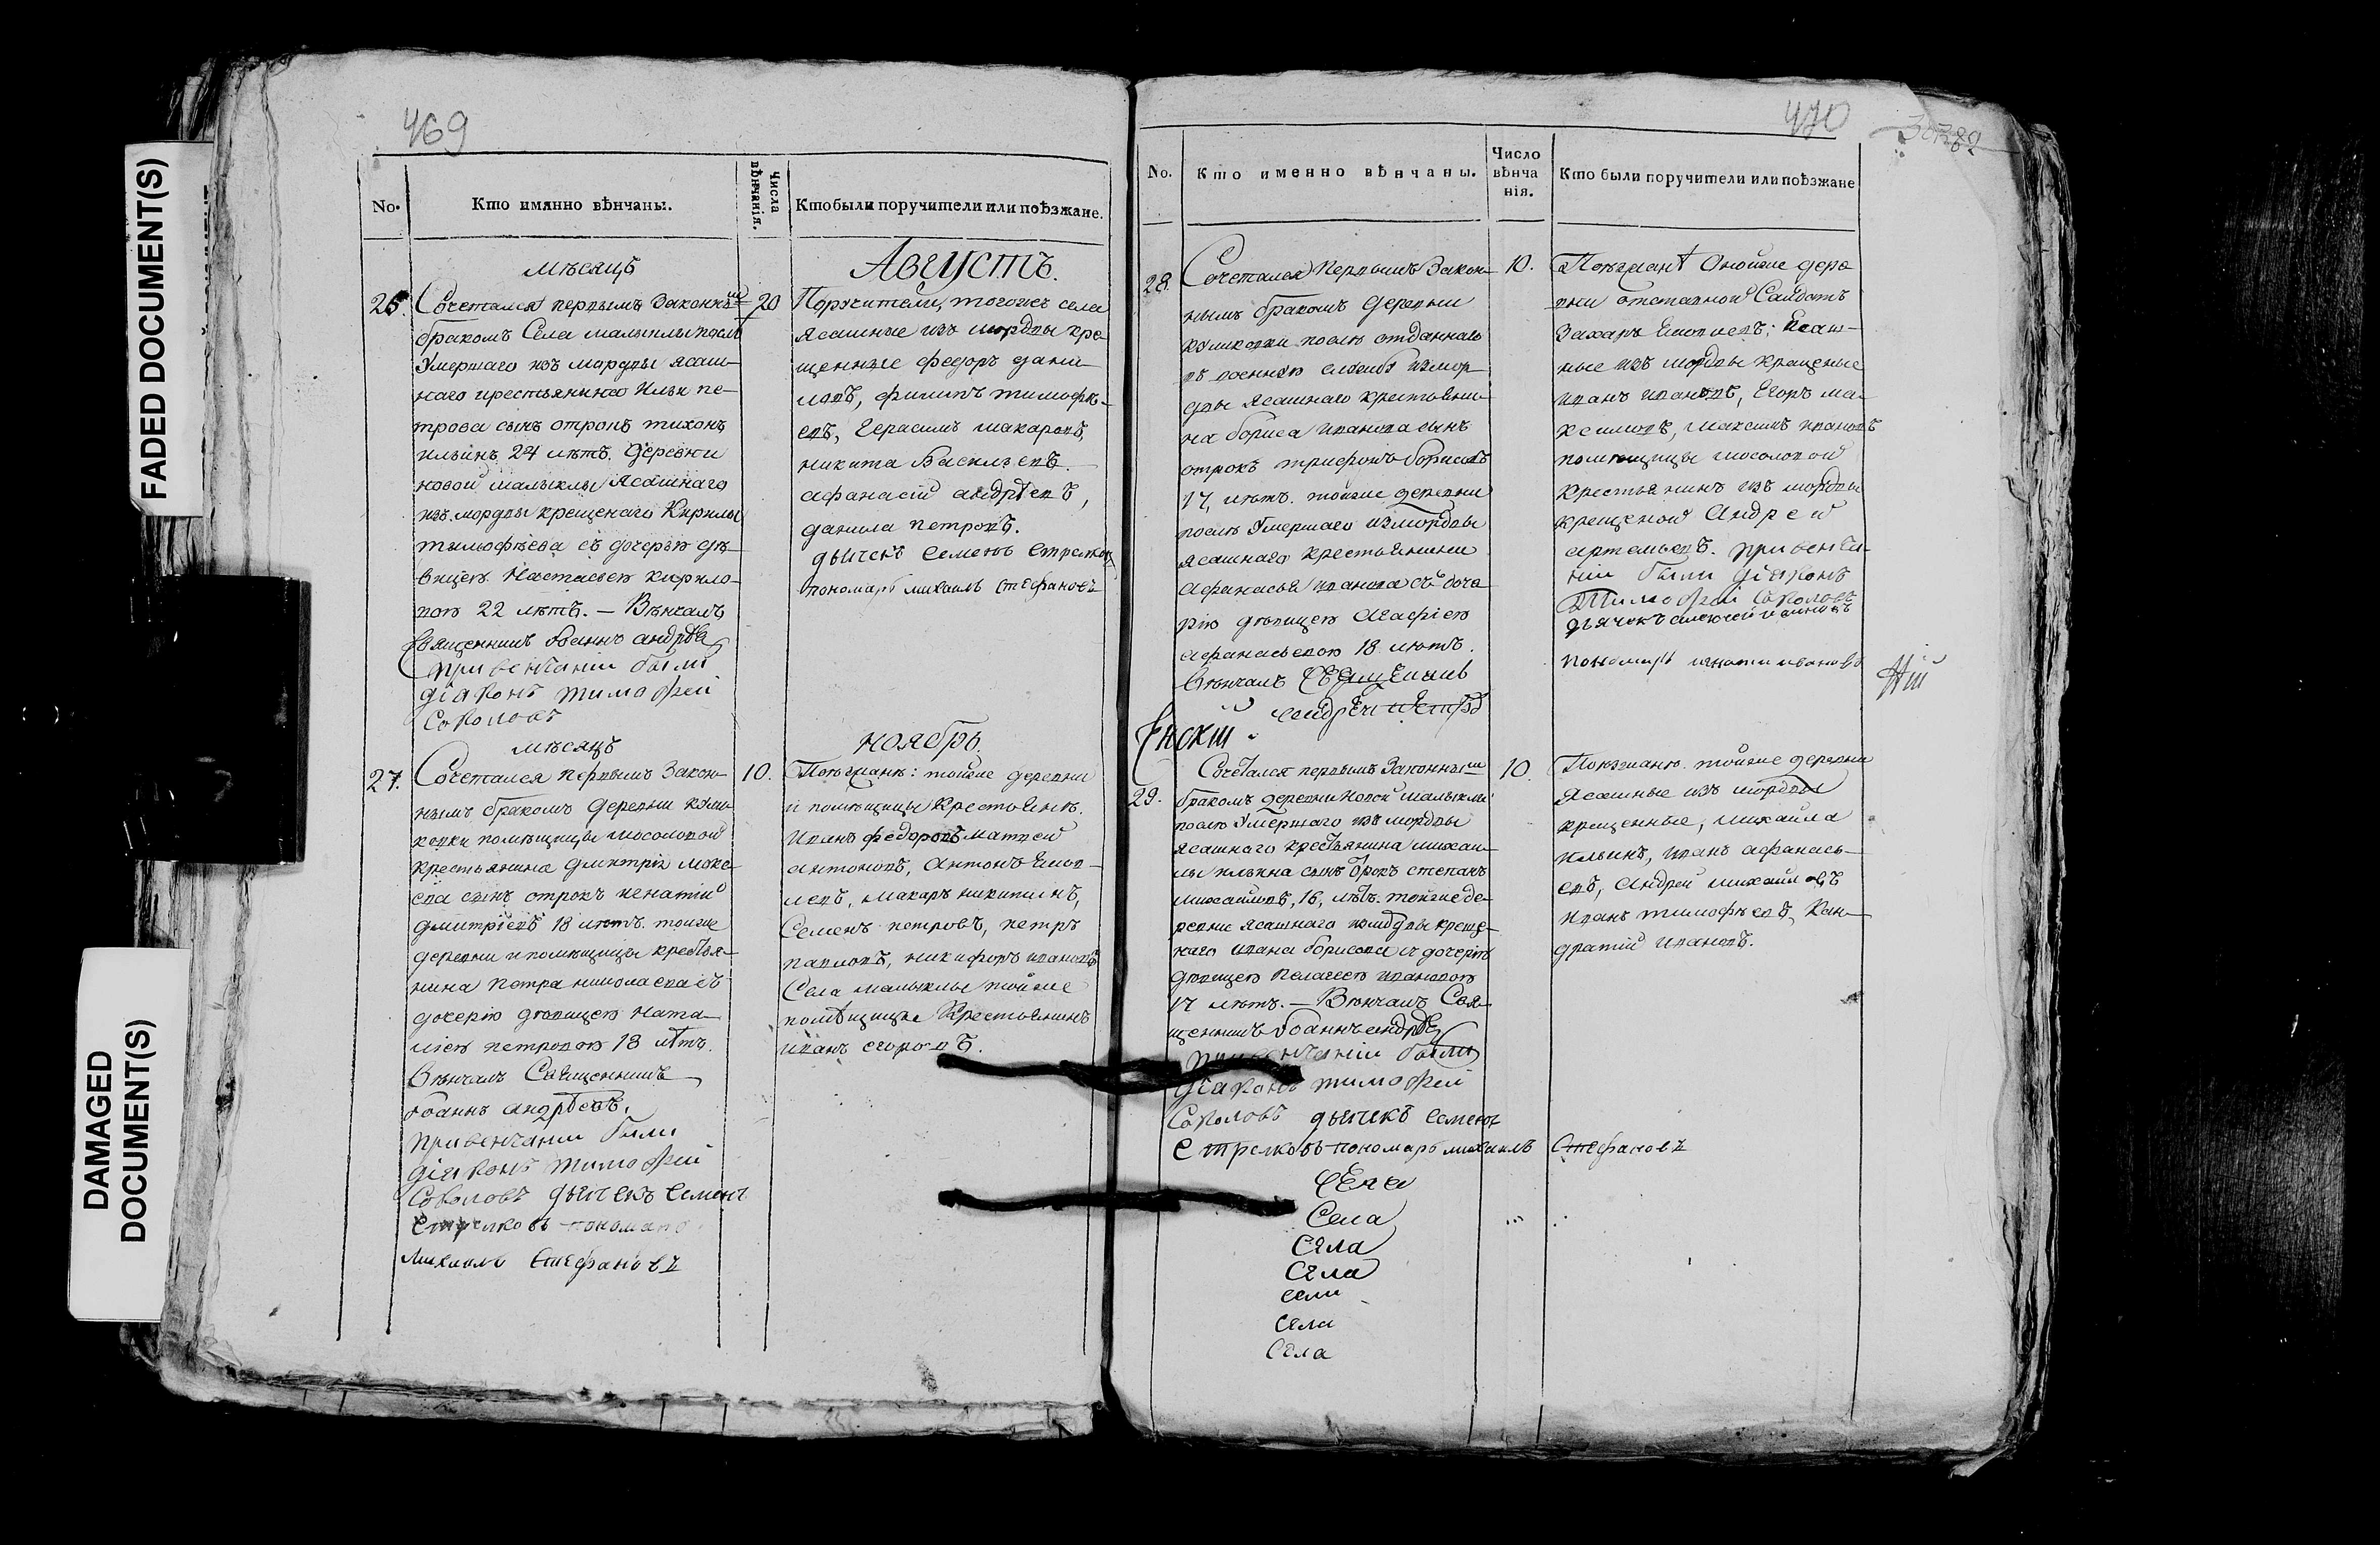 FADED DOCUMENT(S)
DAMAGED
DOCUMENT(S)
469
No.
Кто имянно вѣнчаны.
Числа
вѣнчанія.
Кто были поручители или поѣзжане.
мѣсяцъ
Августъ.
26.
Сочетался первымъ законнымъ
бракомъ Села малыклы после
умершаго изъ мордвы ясаш-
наго крестьянина Ильи пе-
трова сынъ отрокъ тихонъ
ильинъ 24 лѣтъ. деревни
новой малыклы ясашнаго
изъ мордвы крещенаго Кирилы
тимофѣева съ дочерью дѣ-
вицею Настасьею кирило-
вою 22 лѣтъ. — Вѣнчалъ
священникъ Іоаннъ андрѣевъ
при венчаніи были
діаконъ тимофей
Соколовъ
20
Поручители, тогожъ села
ясашные изъ мордвы кре-
щенные федоръ дани-
ловъ, филипъ тимофѣ-
евъ, герасимъ макаровъ,
никита васильевъ.
афанасій андрѣевъ,
данила петровъ.
дьячекъ Семенъ Стрелковъ
пономарь михаилъ стефановъ
мѣсяцъ
ноябрь.
27.
Сочетался первымъ Закон-
нымъ бракомъ деревни кули-
ковки помѣщицы мосоловой
крестьянина дмитрія мокс-
ева сынъ отрокъ игнатій
дмитріевъ 18 лѣтъ. тойже
деревни и помѣщицы крестья-
нина петра николаева съ
дочерію дѣвицею ната-
ліею петровою 18 лѣтъ.
вѣнчалъ Священникъ
Іоаннъ андрѣевъ.
при венчании были
діаконъ тимофей
Соколовъ дьячекъ семенъ
Стрелковъ пономарь
михаилъ Стефановъ
10.
Поѣзжанѣ: тойже деревни
и помѣщицы крестьянѣ.
иванъ федоровъ матвей
антоновъ, антонъ
макаръ никитинъ,
Семенъ петровъ, петръ
павловъ, никифоръ ивановъ
Села малыклы тойже
помѣщицы Крестьянинъ
иванъ егоровъ.
470
No.
Кто именно вѣнчаны.
Число
вѣнча
нія.
Кто были поручители или поѣзжане
28.
Сочетался первымъ Закон-
нымъ бракомъ деревни
куликовки послѣ отданнаго
въ военную службу измор-
двы ясашнаго крестьяни-
на бориса иванова сынъ
отрокъ трифонъ борисовъ
17, лѣтъ. тойже деревни
послѣ умершаго измордвы
ясашнаго крестьянина
афанасья иванова съ доче-
рію дѣвицею агафіею
афанасьевою 18 лѣтъ.
вѣнчалъ священникъ
андрей петровъ
10.
Поѣзжанѣ оной же дере-
вни отставной Салдатъ
Захаръ Ясаш-
ные изъ мордвы крещеные
иванъ ивановъ, егоръ ма-
ксимовъ, максимъ ивановъ
помѣщицы мосоловой
крестьянинъ изъ мордвы
крещеной Андрей
артемьевъ. при венча-
ніи были діаконъ
Тимофей Соколовъ
дьячокъ алексей
пономарь игнати ивановъ
29.
Сочетался первымъ Законнымъ
бракомъ деревни Новой малыклы
послѣ умершаго изъ мордвы
ясашнаго крестьянина михаи-
лы ильина сынъ отрокъ степанъ
михайловъ, 16, лѣтъ. тойже де-
ревни ясашнаго измордвы креще-
наго ивана борисова съ дочерію
дѣвицею пелагеею ивановою
17 лѣтъ. — Вѣнчалъ Свя-
щенникъ Іоаннъ андрѣевъ
при венчаніи были
діаконъ тимофей
Соколовъ дьячекъ Семенъ
Стрелковъ пономарь михаилъ Стефановъ
10.
Поѣзжанѣ. тойже деревни
ясашные изъ мордвы
крещенные, михаила
ильинъ, иванъ афанась-
евъ, андрей михайловъ
иванъ тимофѣевъ, Кон-
дратій ивановъ.
Села
Села
Села
Села
сели
Сели
Села